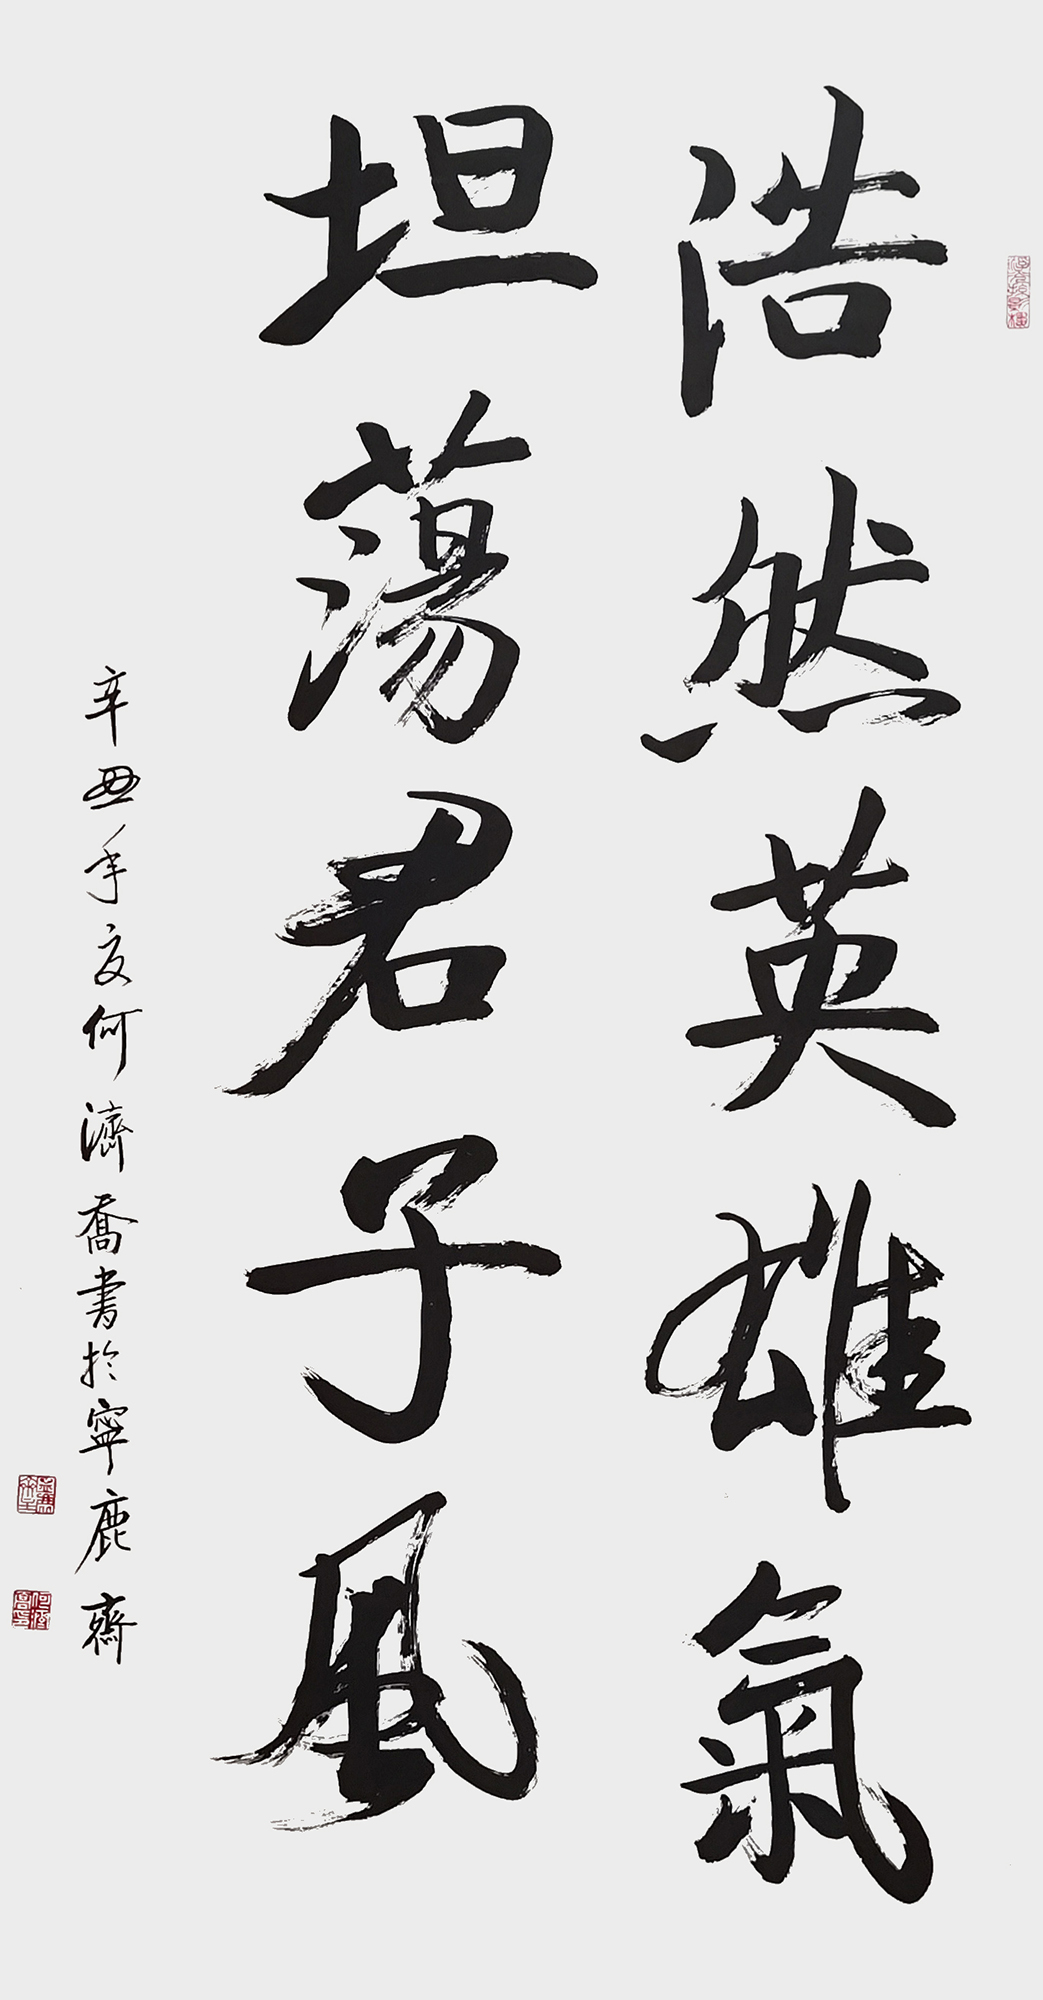 浩然英雄氣
坦蕩君子風
辛丑年夏何濟喬書於寧鹿齋